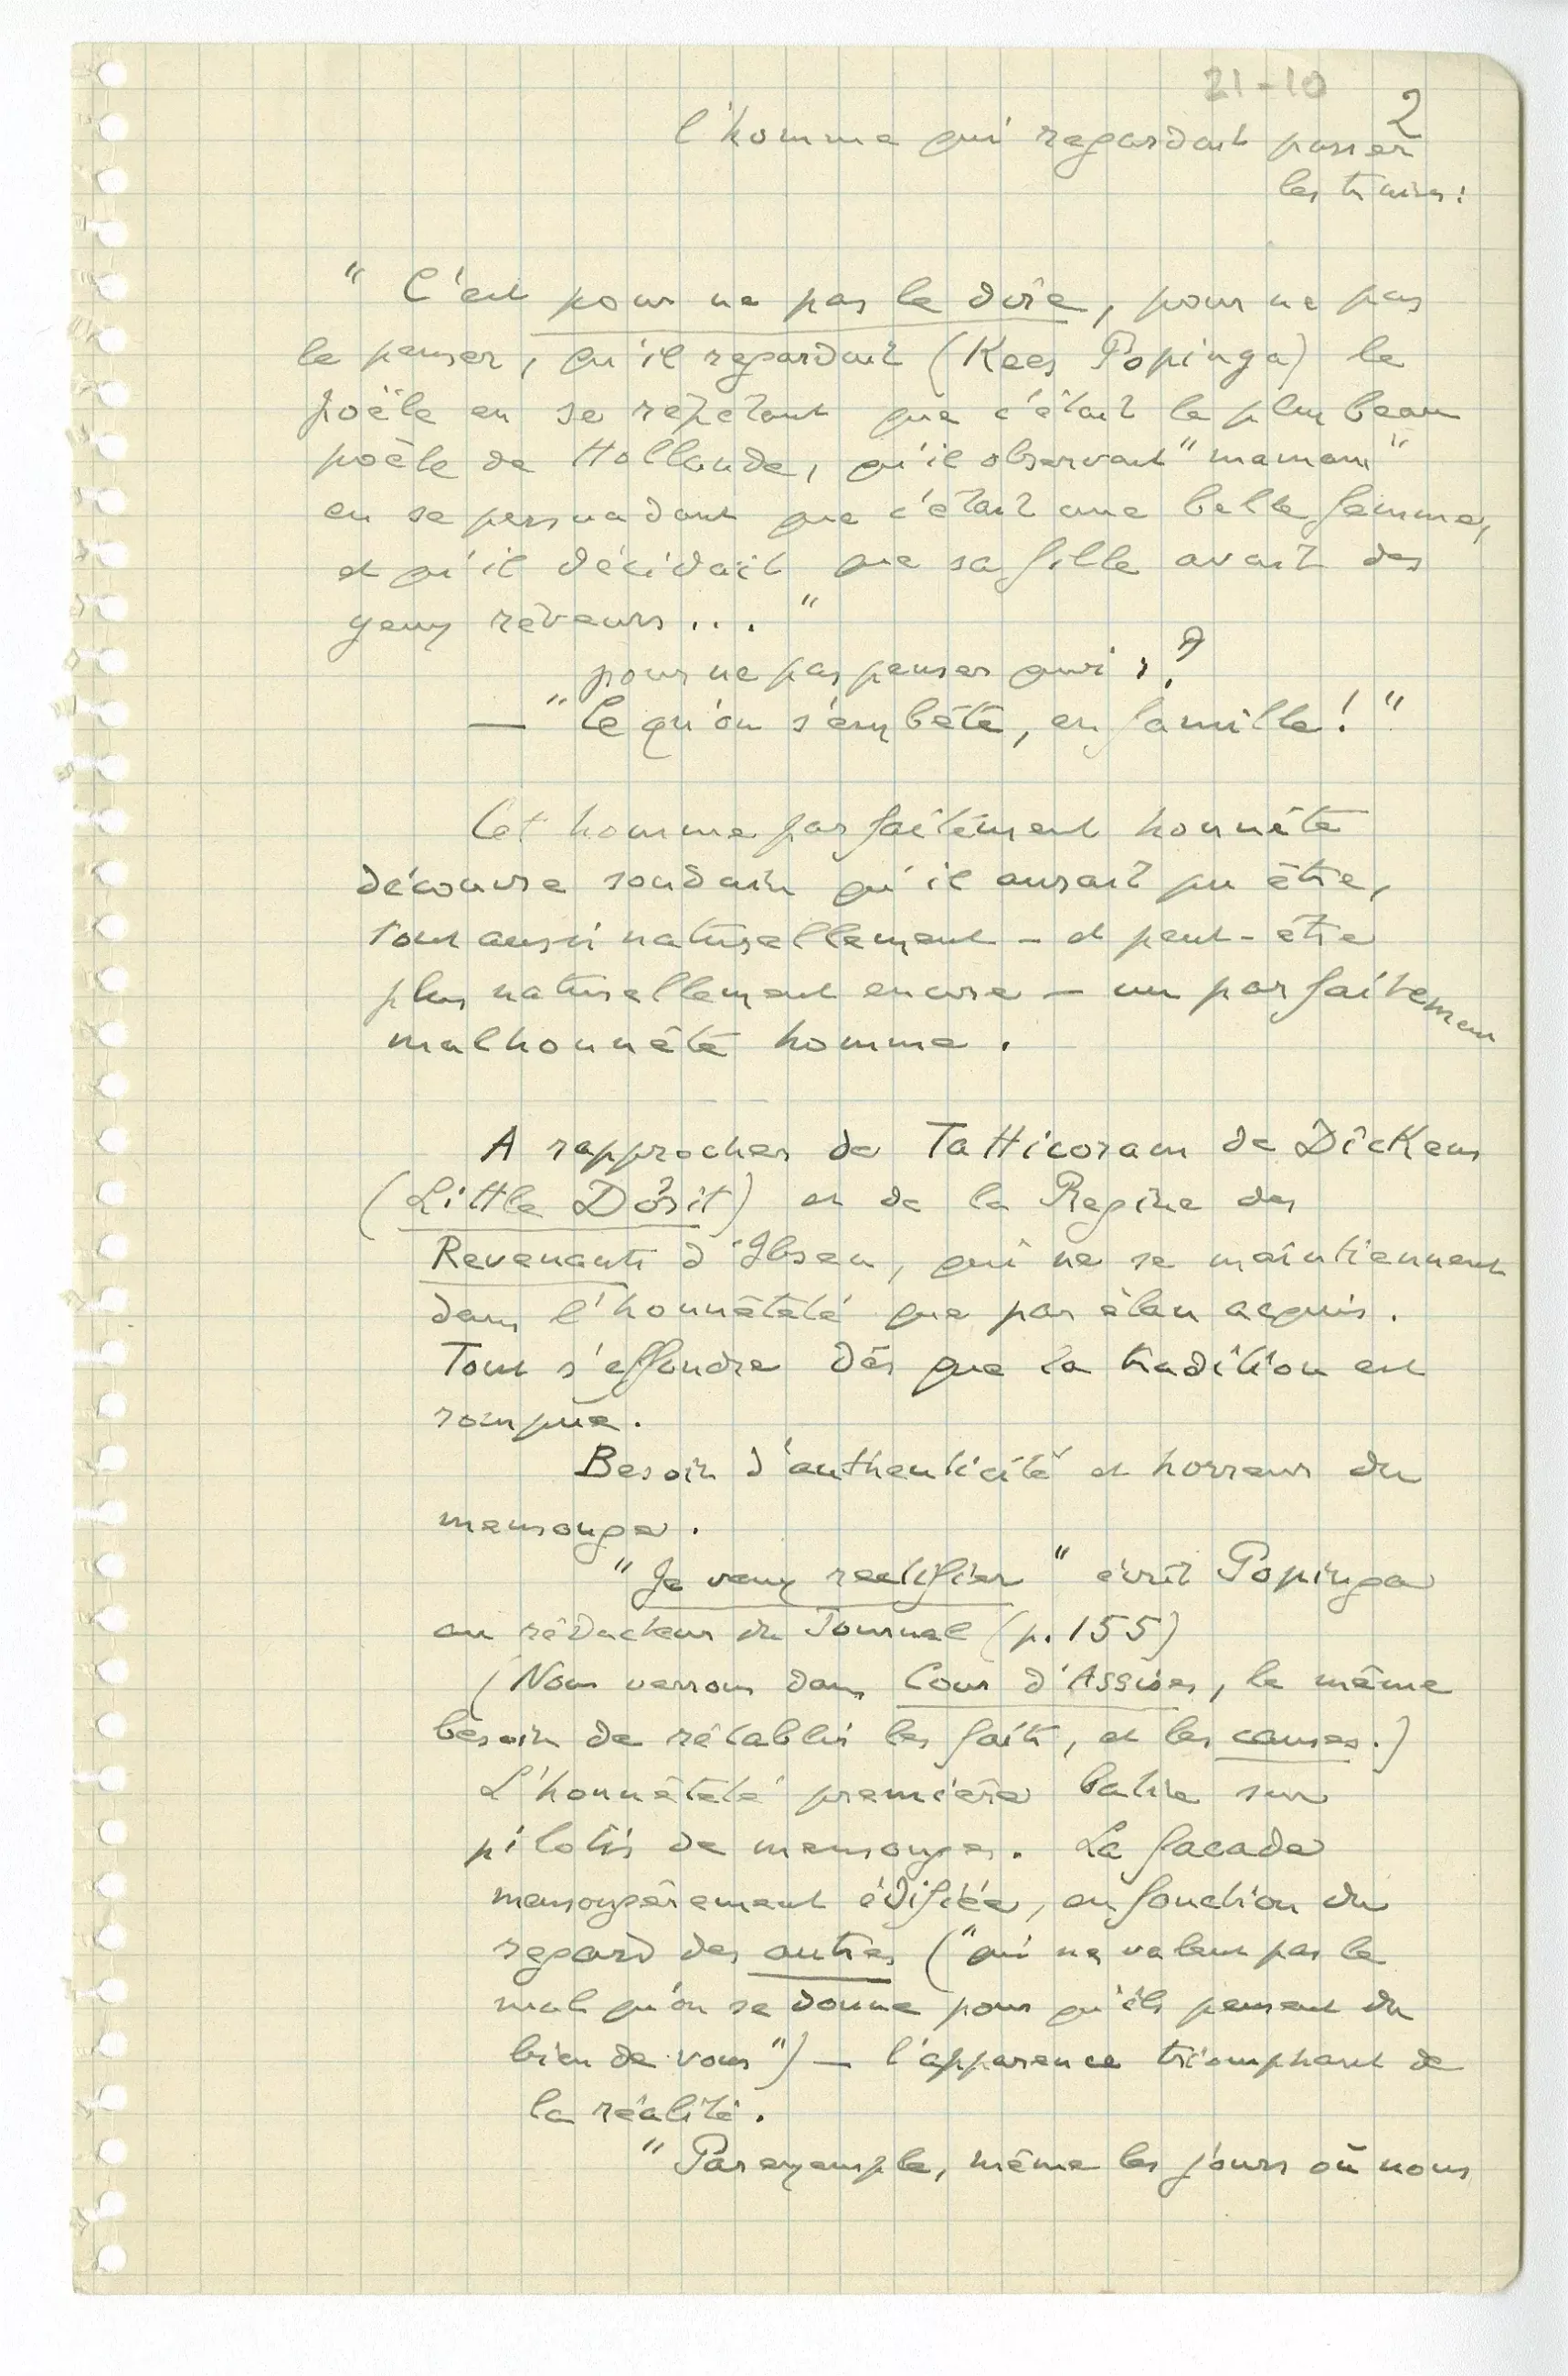 21-10
2
l'homme qui regardait passer
les trains :
" C'est pour ne pas le dire, pour ne pas
le penser, qu'il regardait (Kees Popinga) le
poêle en se répétant que c'était le plus beau
poêle de Hollande, qu'il observait "maman"
en se persuadant que c'était une belle femme,
et qu'il décidait que sa fille avait des
yeux rêveurs... "
pour ne pas penser quoi ?
— " Ce qu'on s'embête, en famille ! "
Cet homme parfaitement honnête
découvre soudain qu'il aurait pu être,
tout aussi naturellement — et peut-être
plus naturellement encore — un parfaitement
malhonnête homme.
A rapprocher de Tatticoram de Dickens
(Little Dorit) et de la Régine des
Revenants d'Ibsen, qui ne se maintiennent
dans l'honnêteté que par élan acquis.
Tout s'effondre dès que la tradition est
rompue.
Besoin d'authenticité et horreur du
mensonge.
"Je veux rectifier" écrit Popinga
au rédacteur du Journal (p. 155)
(Nous verrons dans Cour d'Assises, le même
besoin de rétablir les faits, et les causes.)
L'honnêteté première batie sur
pilotis de mensonges. La facade
mensongèrement édifiée, en fonction du
regard des autres ("qui ne valent pas le
mal qu'on se donne pour qu'ils pensent du
bien de vous") — l'apparence triomphant de
la réalité.
"Par exemple, même les jours où nous